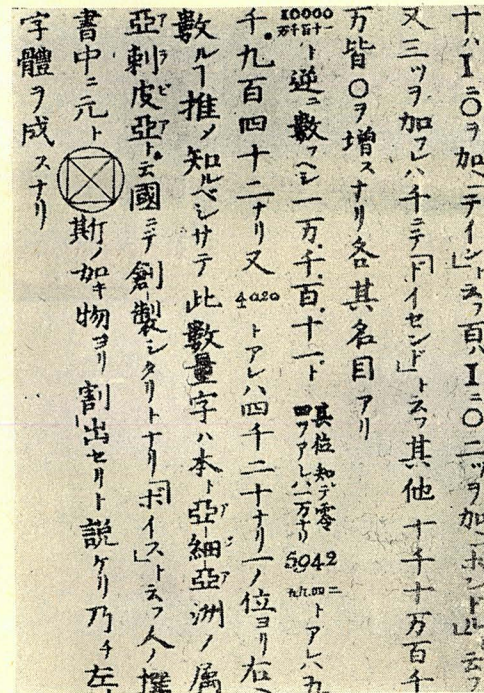 十ハI二〇ヲ加「テイン」ト云フ百ハI二〇二ツヲ加「ホンドル」ト云フ
又三ツヲ加フレハ千ニテ「ドイセンド」ト云フ其他十千十万百千
万皆〇ヲ増スナリ各其名目アリ
10000 万千百十一ト逆ニ數フヘシ一万.千.百.十一.ト 其位知デ零四ツアレハ一万ナリ 5942 九九四二トアレハ五
千.九百四十二ナリ又4020トアレハ四千二十ナリ一ノ位ヨリ右ヘ
數ルヿ推ノ知ルベシサテ此數量字ハ本ト亞細亞洲ノ属
亞剌皮亞ト云國ニテ創製シタリトナリ「ボイス」ト云フ人ノ撰
書中ニ元ト斯ノ如キ物ヨリ割出セリト説ケリ乃チ左
字體ヲ成スナリ